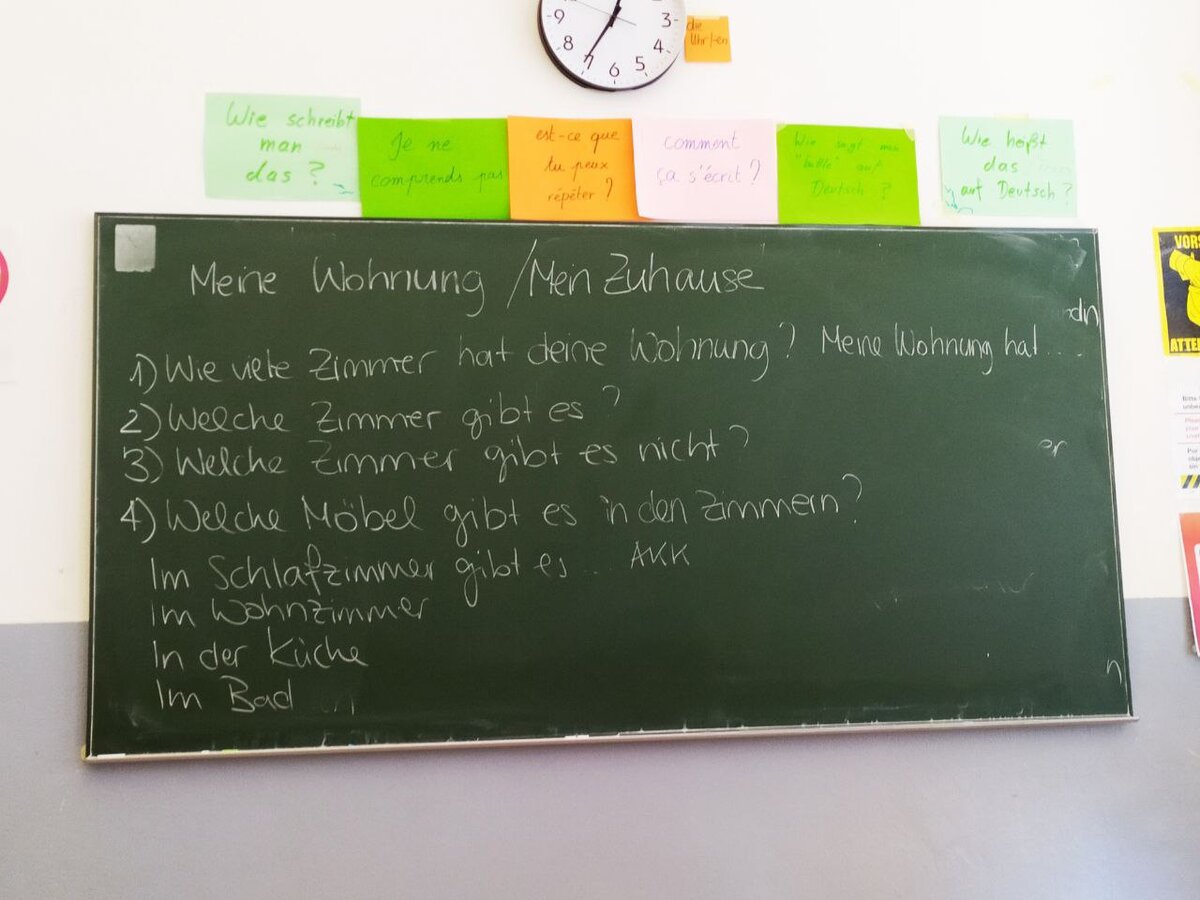 9
3
8
4
7
6
5
die
Uhr/-en
Wie schreibt
man
das?
Je ne
comprends pas
est-ce que
tu peux
répéter?
comment
ça s'écrit?
Wie sagt man
auf
Deutsch?
Wie heißt
das
auf Deutsch?
Meine Wohnung / Mein Zuhause
1) Wie viele Zimmer hat deine Wohnung? Meine Wohnung hat ...
2) Welche Zimmer gibt es?
3) Welche Zimmer gibt es nicht?
4) Welche Möbel gibt es in den Zimmern?
Im Schlafzimmer gibt es ... AKK
Im Wohnzimmer
In der Küche
Im Bad
dn
er
n
VORS
ATTE